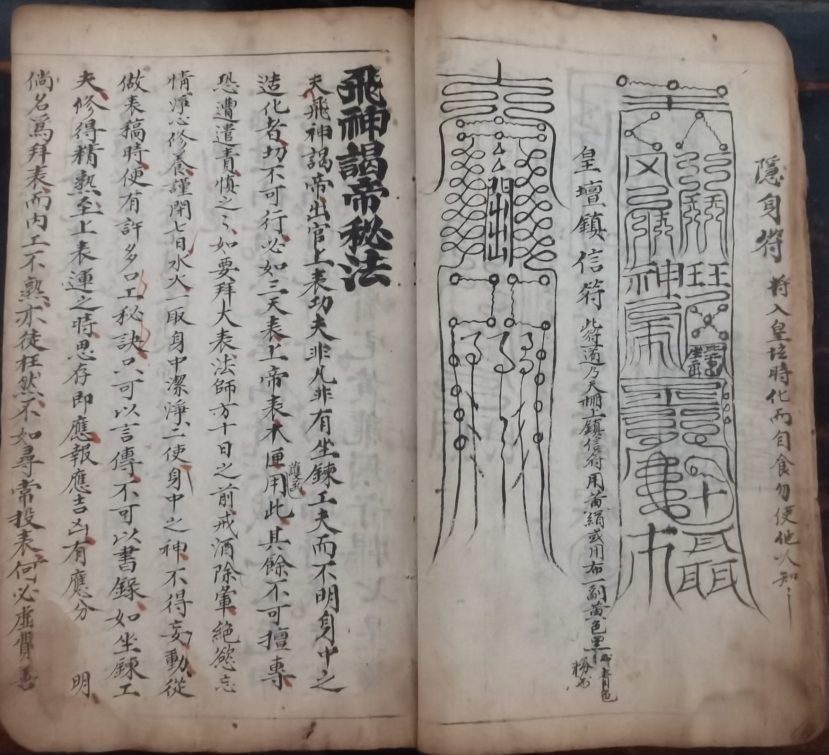 隱身符 將入皇坛時化而自食勿使他人知
皇壇鎮信符 此符道乃天壇上鎮信符用黃絹或用布一副黃色黑
飛神謁帝秘法
夫飛神謁帝出官上表功夫非凡非有坐鍊工夫而不明身中之
造化者切不可行必如三天表上帝表木匣用此其餘不可擅專
恐遭遣責慎之々如要拜大表法師方十日之前戒酒除葷絕慾忘
情煉心修養謹閉七日水火一取身中潔淨二使身中之神不得妄動從
做表稿時便有許多口工秘訣只可以言傳不可以書錄如坐鍊工
夫修得精熟至上表運之時思存即應報應吉凶有應分明
倘名為拜表而內工不熟亦徒枉然不如尋常投表何必虛費善